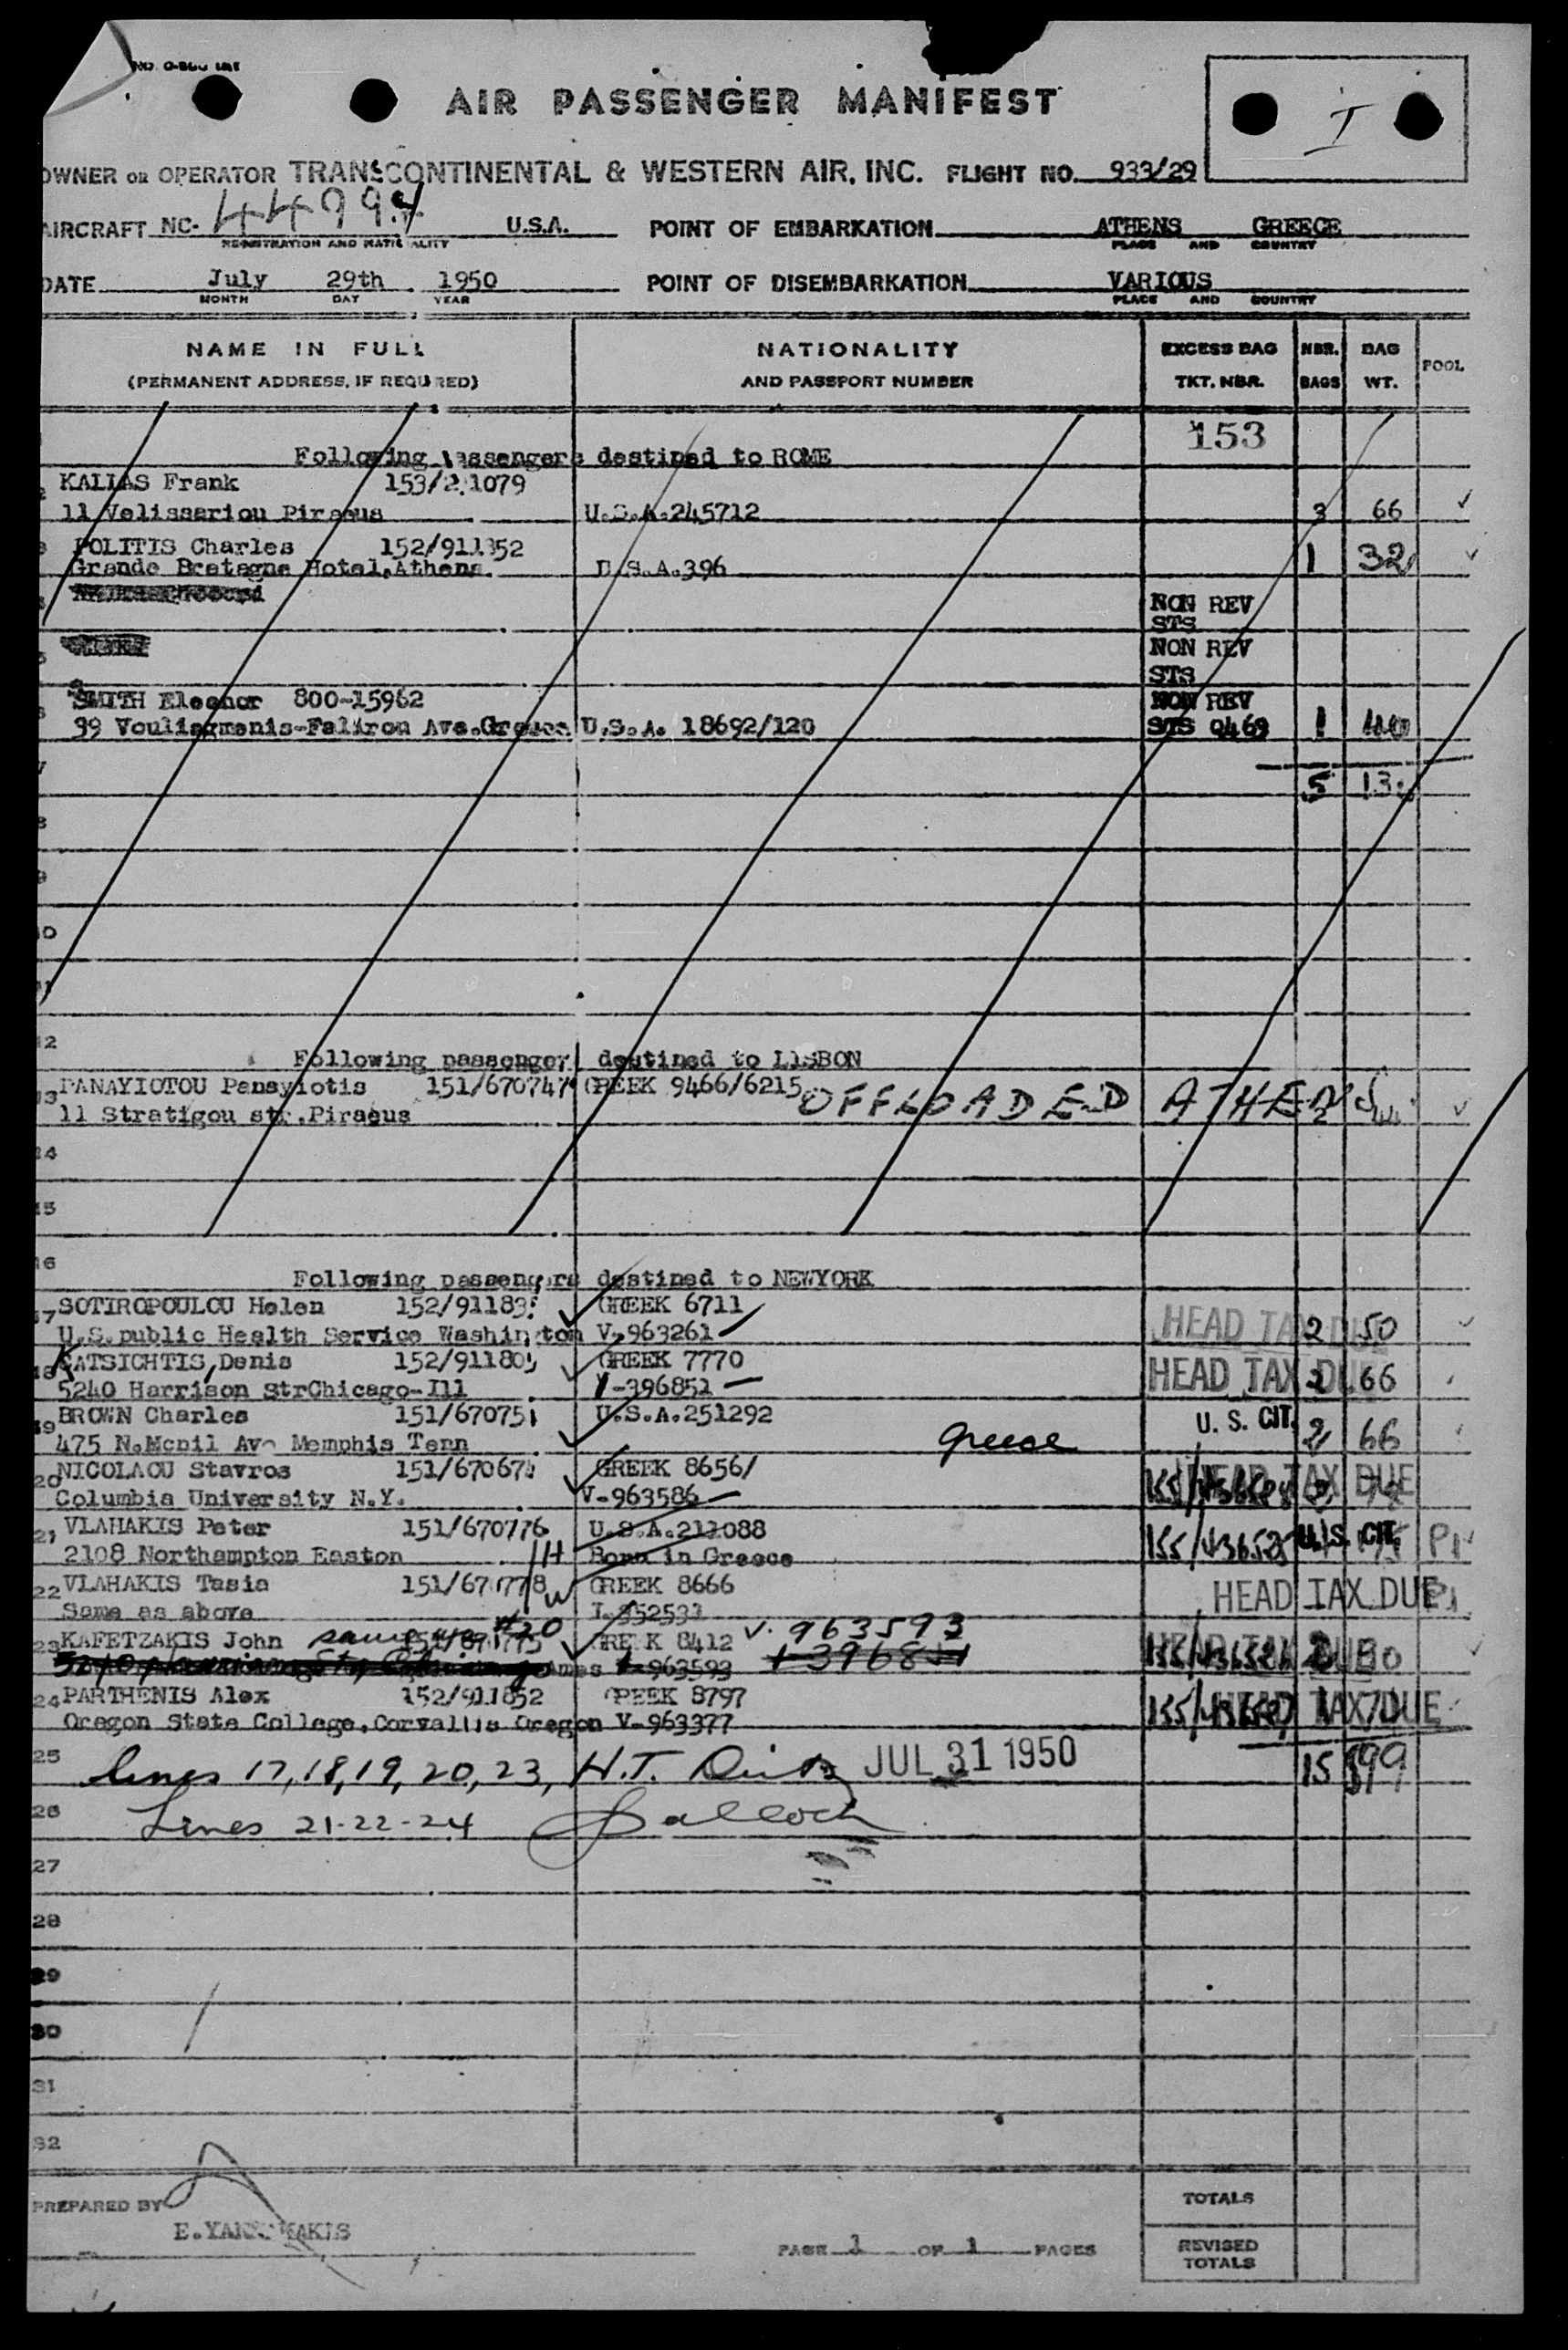 AIR PASSENGER MANIFEST
I
OWNER OR OPERATOR TRANSCONTINENTAL & WESTERN AIR, INC. FLIGHT NO. 933/29
AIRCRAFT NC- U.S.A. POINT OF EMBARKATION ATHENS GREECE
REGISTRATION AND NATIONALITY PLACE AND COUNTRY
DATE July 29th 1950 POINT OF DISEMBARKATION VARIOUS
MONTH DAY YEAR PLACE AND COUNTRY
NAME IN FULL NATIONALITY EXCESS BAG NBR. BAG POOL
(PERMANENT ADDRESS, IF REQUIRED) AND PASSPORT NUMBER TKT. NBR. BAGS WT.
153
Following passengers destined to ROME
2 KALIAS Frank 153/2.1079
11 Velissariou Piraeus U.S.A.245712 3 66
3 POLITIS Charles 152/911352
Grande Bretagne Hotel,Athens. U.S.A.396 1 32
NON REV
STS
NON REV
STS
SMITH Eleanor 800-15962 NON REV
39 Vouliagmenis-Faliron Ave.Greece U.S.A. 18692/120 STS 0469 1
7
5
8
9
10
11
12 Following passenger destined to LISBON
13 PANAYIOTOU Panayiotis 151/670747 GREEK 9466/6215 OFFLOADED ATHENS
11 Stratigou str.Piraeus
14
15
16 Following passengers destined to NEWYORK
17 SOTIROPOULOU Helen 152/91183 GREEK 6711
U.S.public Health Service Washington V-963261 HEAD TAX DUE 2 50
18 KATSICHTIS,Denis 152/91180 GREEK 7770
5240 Harrison StrChicago-Ill -396851 HEAD TAX DUE 2 66
19 BROWN Charles 151/67075 U.S.A.251292 U. S. CIT.
475 N.Mcnil Ave Memphis Tenn Greece 2 66
20 NICOLAOU Stavros 151/67067 GREEK 8656/
Columbia University N.Y. V-963586 HEAD TAX DUE
21 VLAHAKIS Peter 151/670776 U.S.A.211088 U. S. CIT.
2108 Northampton Easton H Born in Greece
22 VLAHAKIS Tasia 151/670778 W GREEK 8666 HEAD TAX DUE
Same as above I.352531
23 KAFETZAKIS John same as #20 GREEK 8412 V. 963593
V-963593 HEAD TAX DUE
24 PARTHENIS Alex 152/911852 GREEK 8797
Oregon State College,Corvallis Oregon V-963377 HEAD TAX DUE
25 Lines 17,18,19,20,23, H.T. JUL 31 1950 15 599
26 Lines 21-22-24
27
28
29
30
31
32
PREPARED BY
TOTALS
PAGE 1 OF 1 PAGES
REVISED
TOTALS